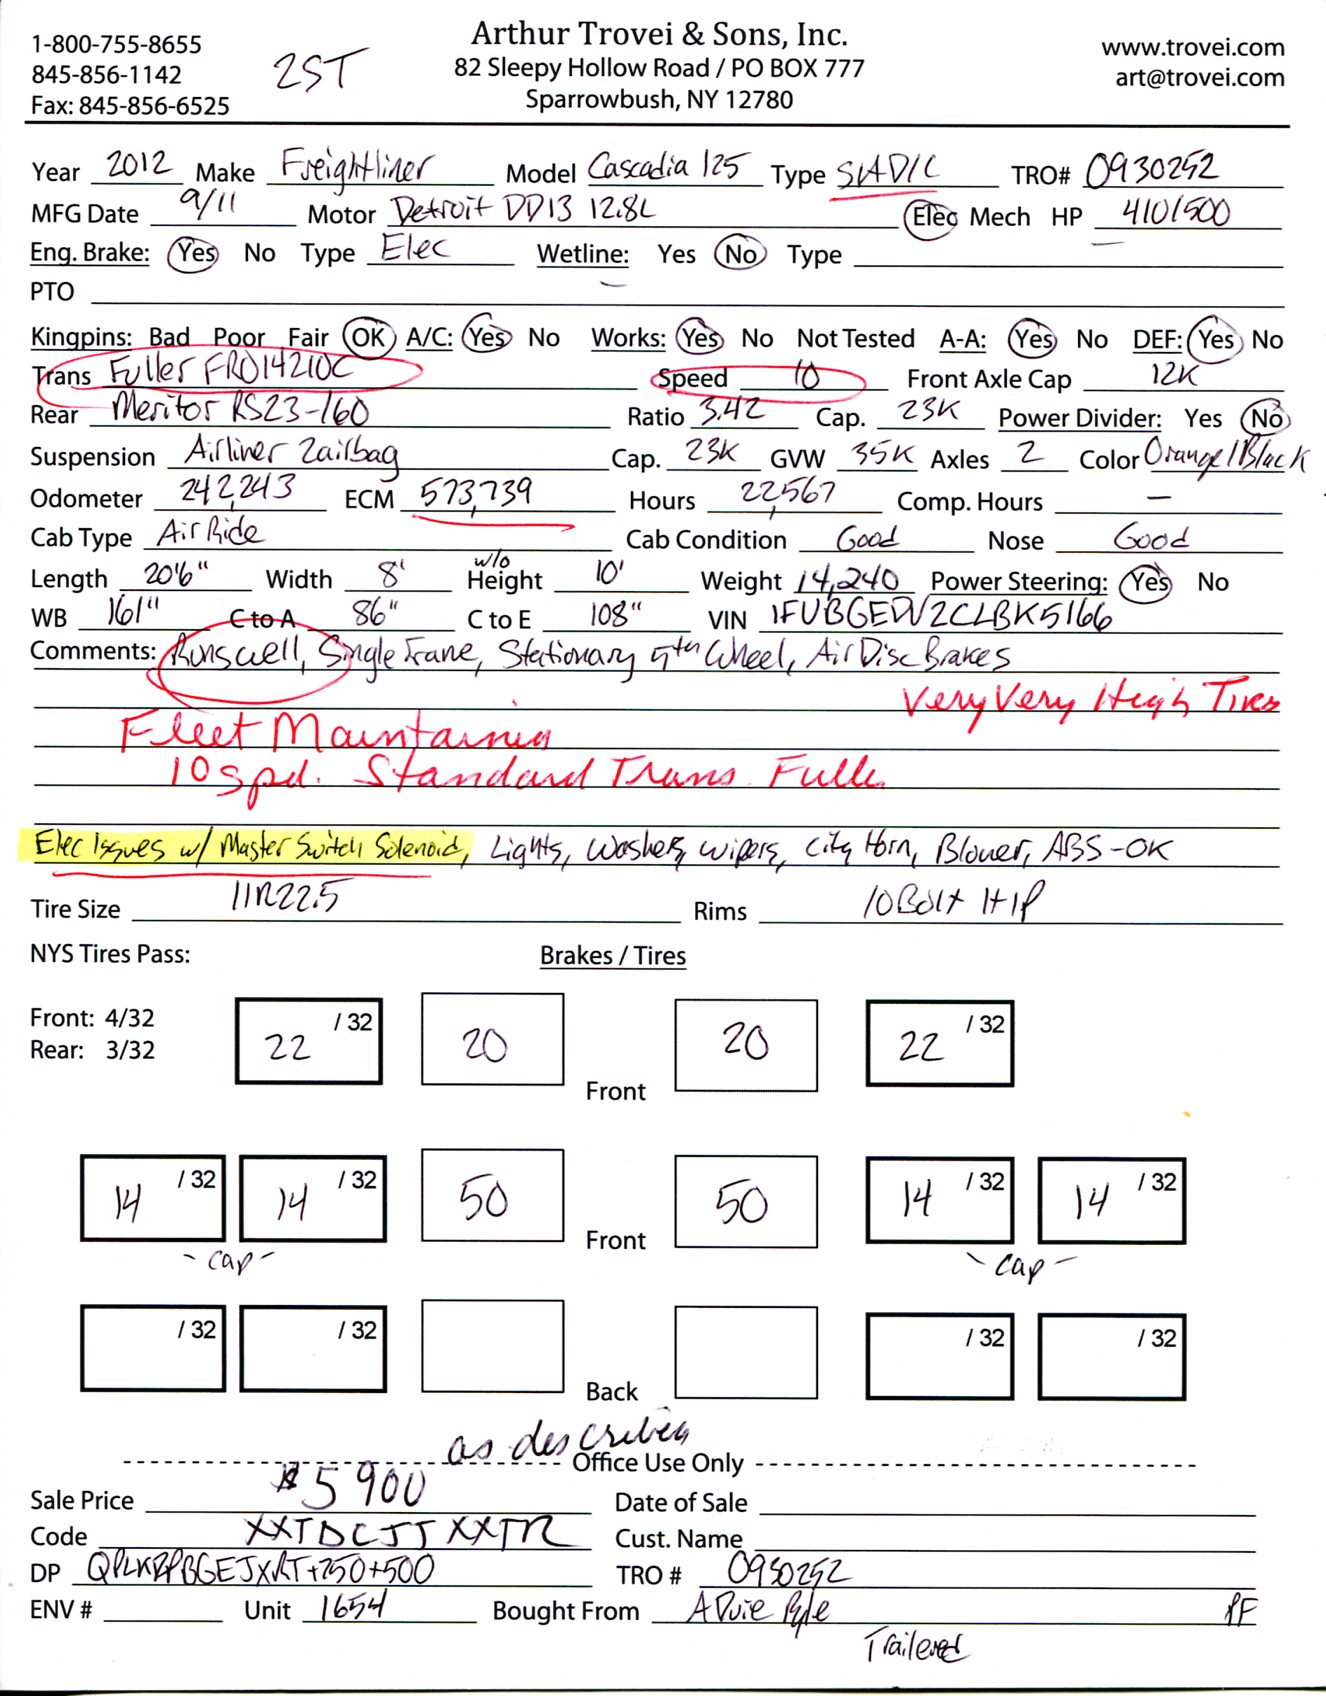 Arthur Trovei & Sons, Inc.
82 Sleepy Hollow Road / PO BOX 777
Sparrowbush, NY 12780
1-800-755-8655
845-856-1142
Fax: 845-856-6525
2ST
www.trovei.com
art@trovei.com
Year 2012 Make Freightliner Model Cascadia 125 Type S/A D/C TRO# 0930252
MFG Date 9/11 Motor Detroit DD13 12.8L Elec Mech HP 410/500
Eng. Brake: Yes No Type Elec Wetline: Yes No Type
PTO
Kingpins: Bad Poor Fair OK A/C: Yes No Works: Yes No Not Tested A-A: Yes No DEF: Yes No
Trans Fuller FRO14210C Speed 10 Front Axle Cap 12K
Rear Meritor RS23-160 Ratio 3.42 Cap. 23K Power Divider: Yes No
Suspension Airliner 2airbag Cap. 23K GVW 35K Axles 2 Color Orange/Black
Odometer 242,243 ECM 573,739 Hours 22,567 Comp. Hours —
Cab Type Air Ride Cab Condition Good Nose Good
Length 20'6" Width 8' w/o Height 10' Weight 14,240 Power Steering: Yes No
WB 161" C to A 86" C to E 108" VIN 1FUBGEDV2CLBK5166
Comments: Runs well, Single Frame, Stationary 5th Wheel, Air Disc Brakes
Very Very High Tires
Fleet Maintained
10 spd. Standard Trans. Fuller
Elec Issues w/ Master Switch Solenoid, Lights, Washers, Wipers, City Horn, Blower, ABS-OK
Tire Size 11R22.5 Rims 10 Bolt H/P
NYS Tires Pass: Brakes / Tires
Front: 4/32
Rear: 3/32
22 /32 20 Front 20 22 /32
14 /32 14 /32 50 Front 50 14 /32 14 /32
- Cap - - Cap -
/ 32 / 32 Back / 32 / 32
as described
Office Use Only
Sale Price $5900 Date of Sale
Code XXTDCJJXXTR Cust. Name
DP +250+500 TRO # 0930252
ENV # Unit 1654 Bought From PF
Trailered